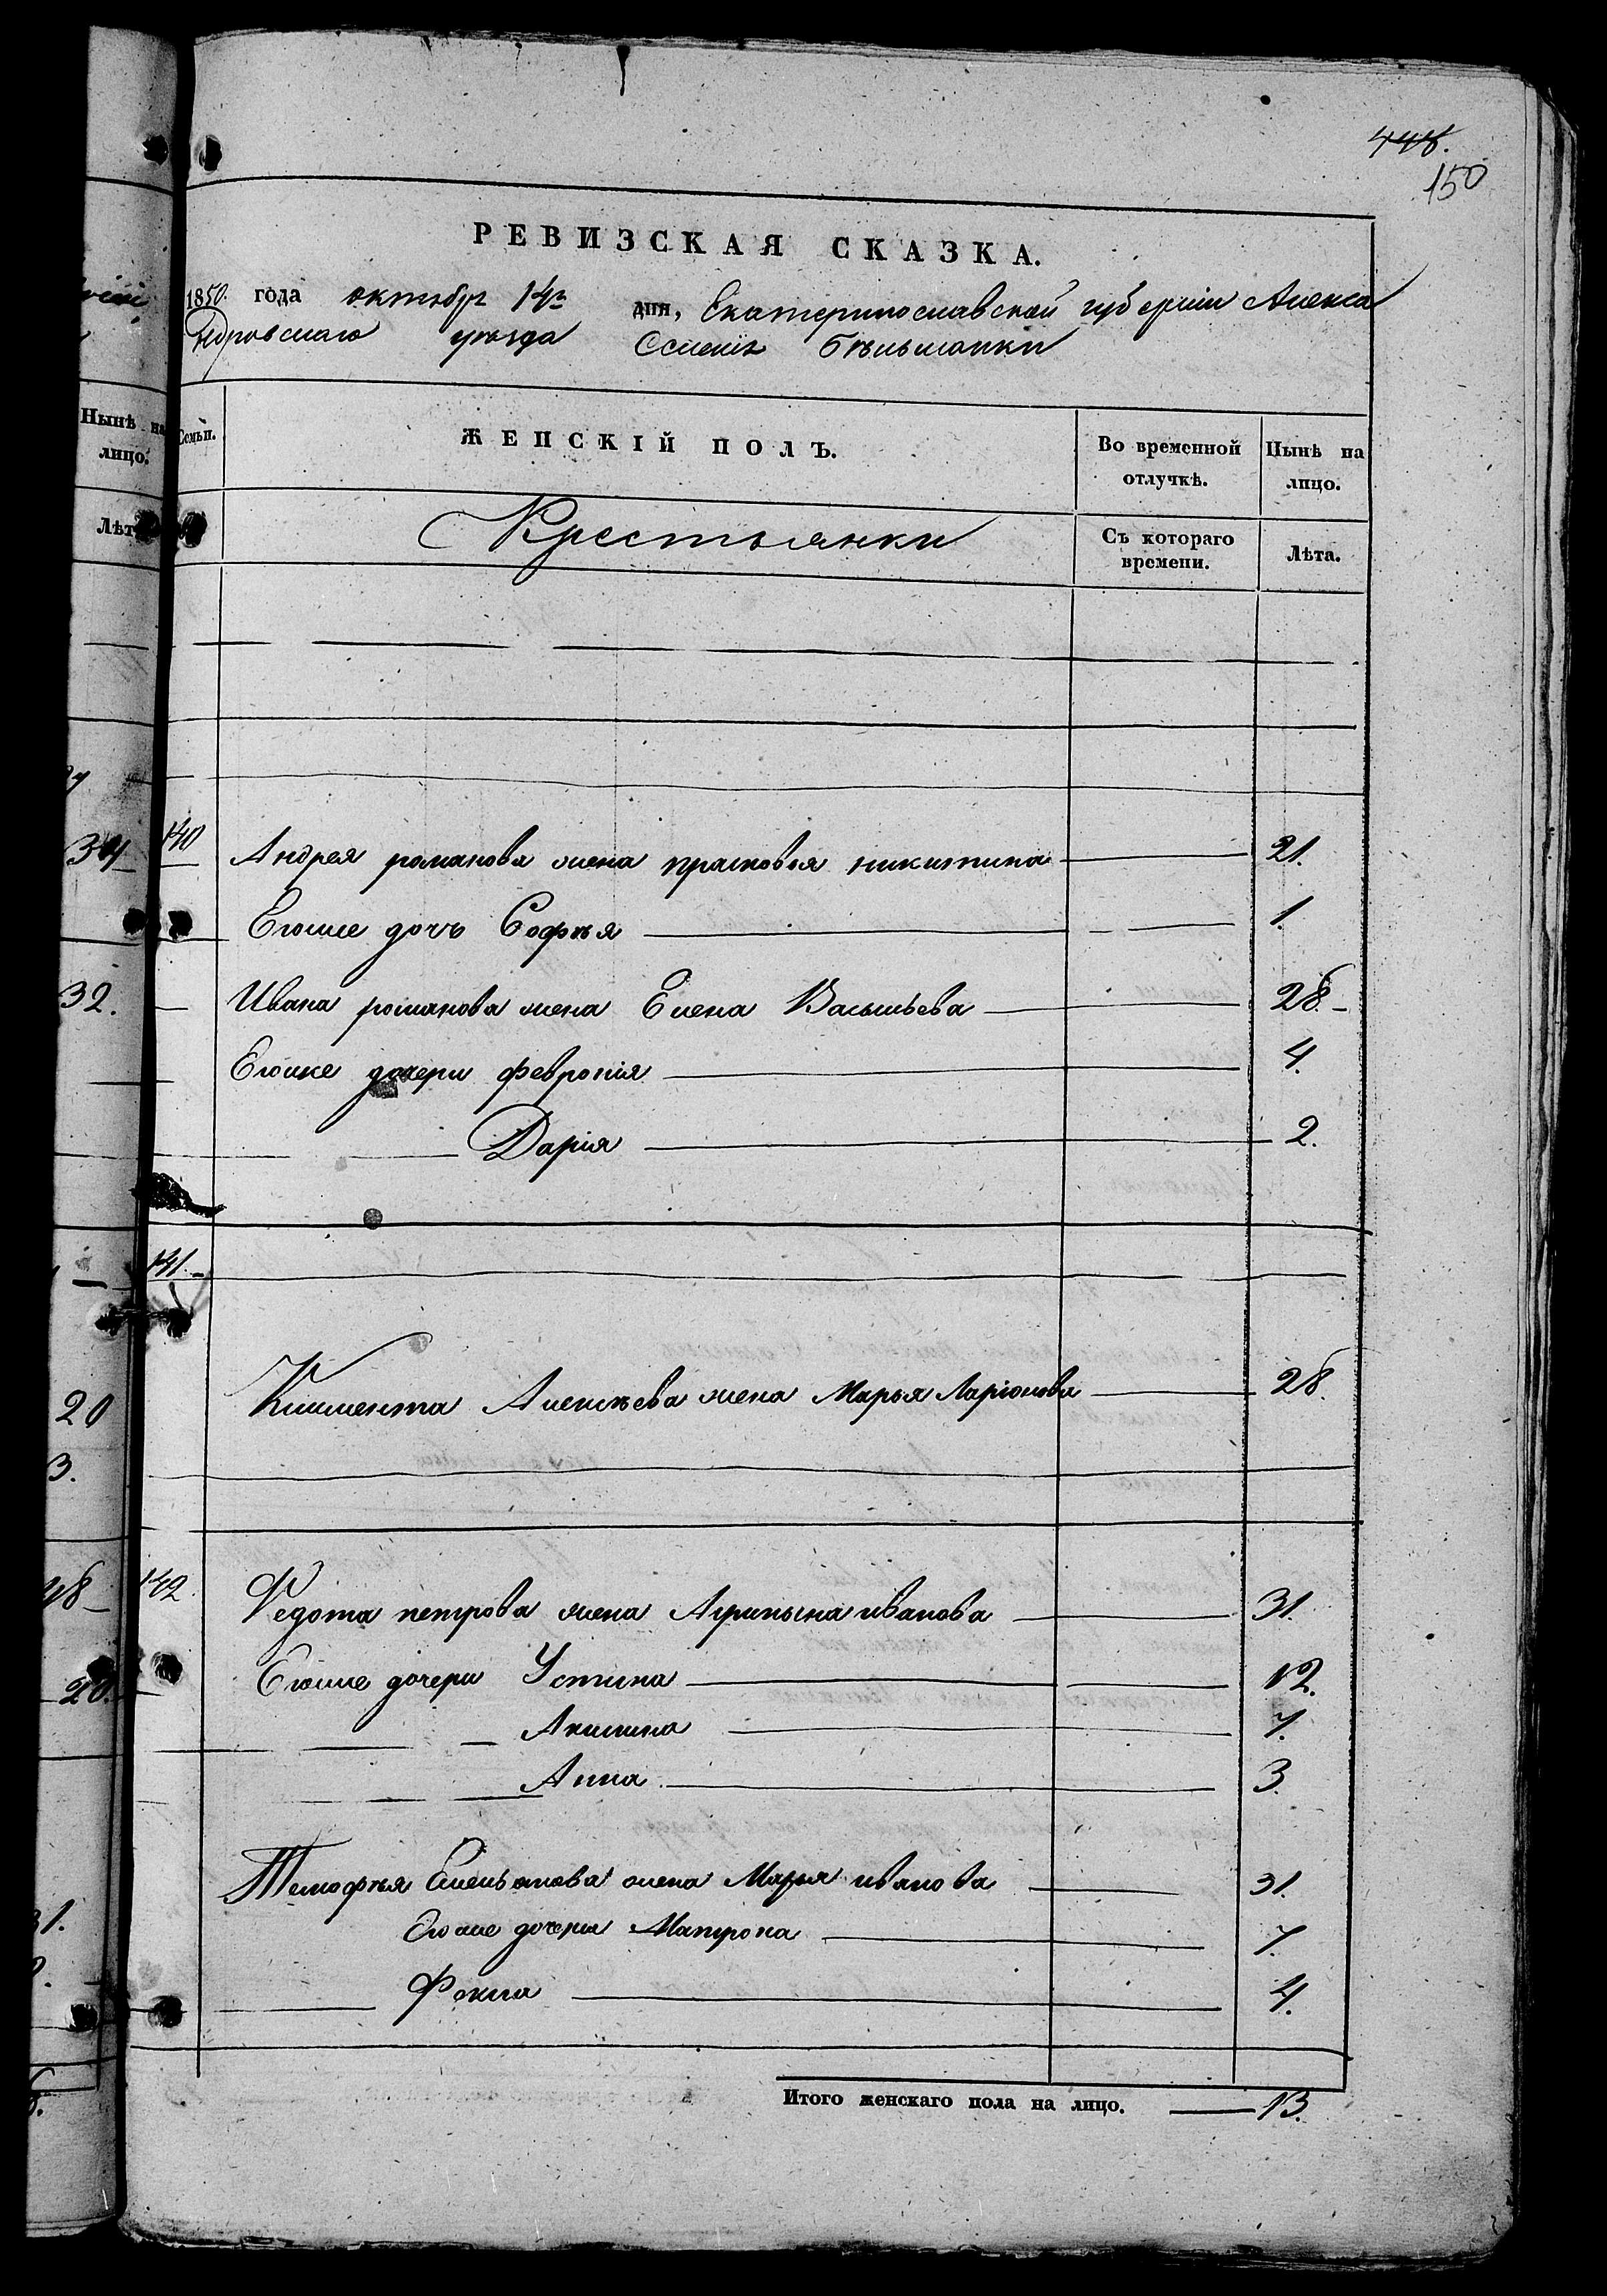 448.
150
РЕВИЗСКАЯ СКАЗКА.
1850. года октября 14го дня, Екатеринославской губернiи Алекса
ндровскаго уезда Селенiя Бѣльманки
Нынѣ на лицо.
Лѣта
Семьи.
ЖЕНСКІЙ ПОЛЪ.
Во временной отлучкѣ.
Нынѣ на лицо.
Крестьянки
Съ котораго времени.
Лѣта.
34
140 Андрея романова жена прасковья никитина 21.
Егоже дочь Софья 1.
32. Ивана романова жена Елена Васильева 28.
Егоже дочери Февронiя 4.
Дарiя 2.
141.
20 Климента Алексѣева жена Марья Ларiонова 28.
3.
48 142. Федота петрова жена Агрипына иванова 31.
20. Егоже дочери Устина 12.
Акилина 7.
Анна 3.
Тимофѣя Емельянова жена Марья иванова 31.
31. Егоже дочери Матрона 7.
Фекла 4.
Итого женскаго пола на лицо. 13.